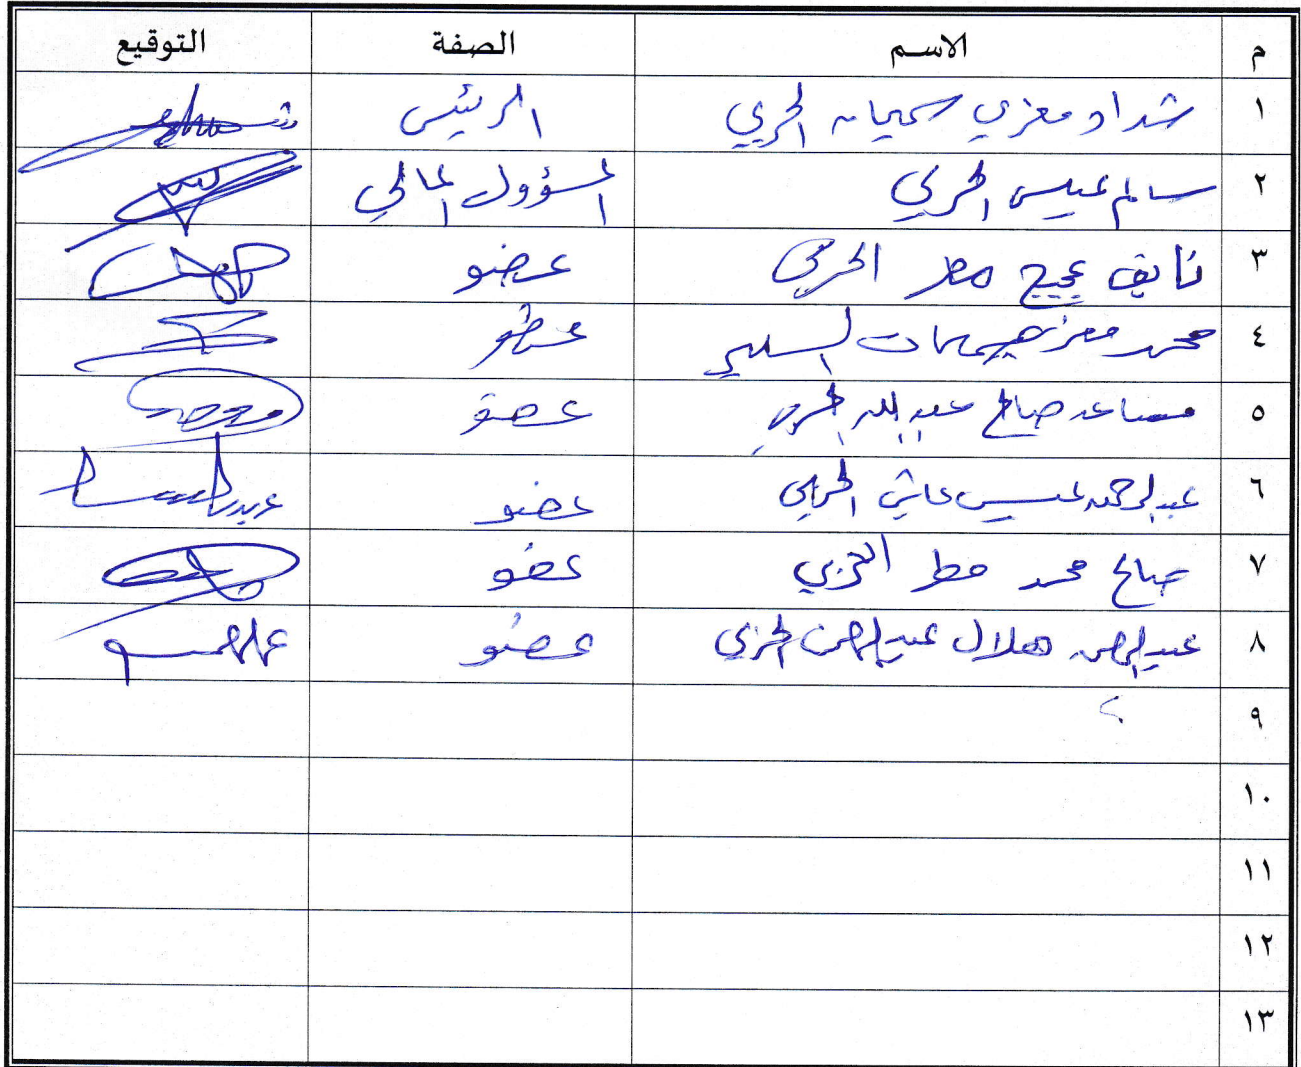 م الاسم الصفة التوقيع
١ شداد معزي سحيمان الحربي الرئيس
٢ سالم عيسى الحربي المسؤول المالي
٣ نايف عجيج مطر الحربي عضو
٤ محمد معز عضو
٥ مساعد صالح عبدالله الحربي عضو
٦ عبدالرحمن عيسى عايش الحربي عضو
٧ صالح محمد مطر الحربي عضو
٨ عبدالرحمن هلال عبدالرحمن الحربي عضو
٩
١٠
١١
١٢
١٣